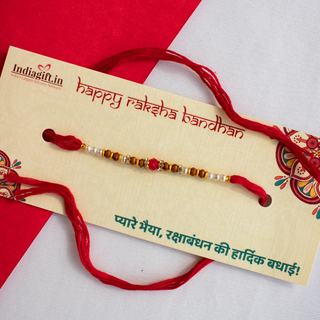 Indiagift.in
happy raksha bandhan
प्यारे भैया, रक्षाबंधन की हार्दिक बधाई!